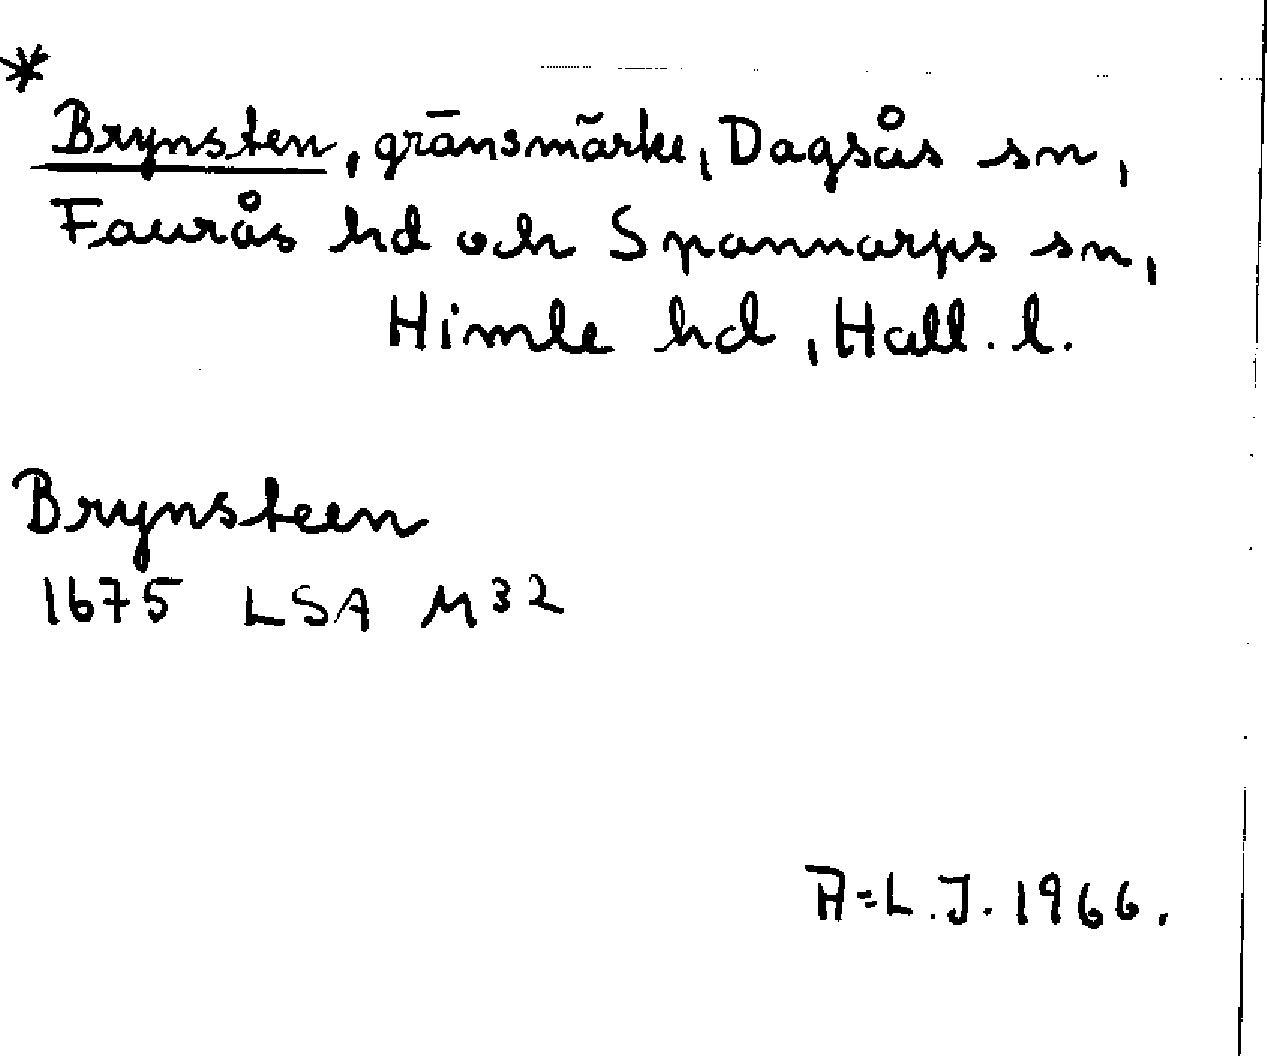 *
Brynsten, gränsmärke, Dagsås sn,
Faurås hd och Spannarps sn,
Himle hd, Hall. l.
Brynsteen
1675 LSA M32
A-L.J. 1966.